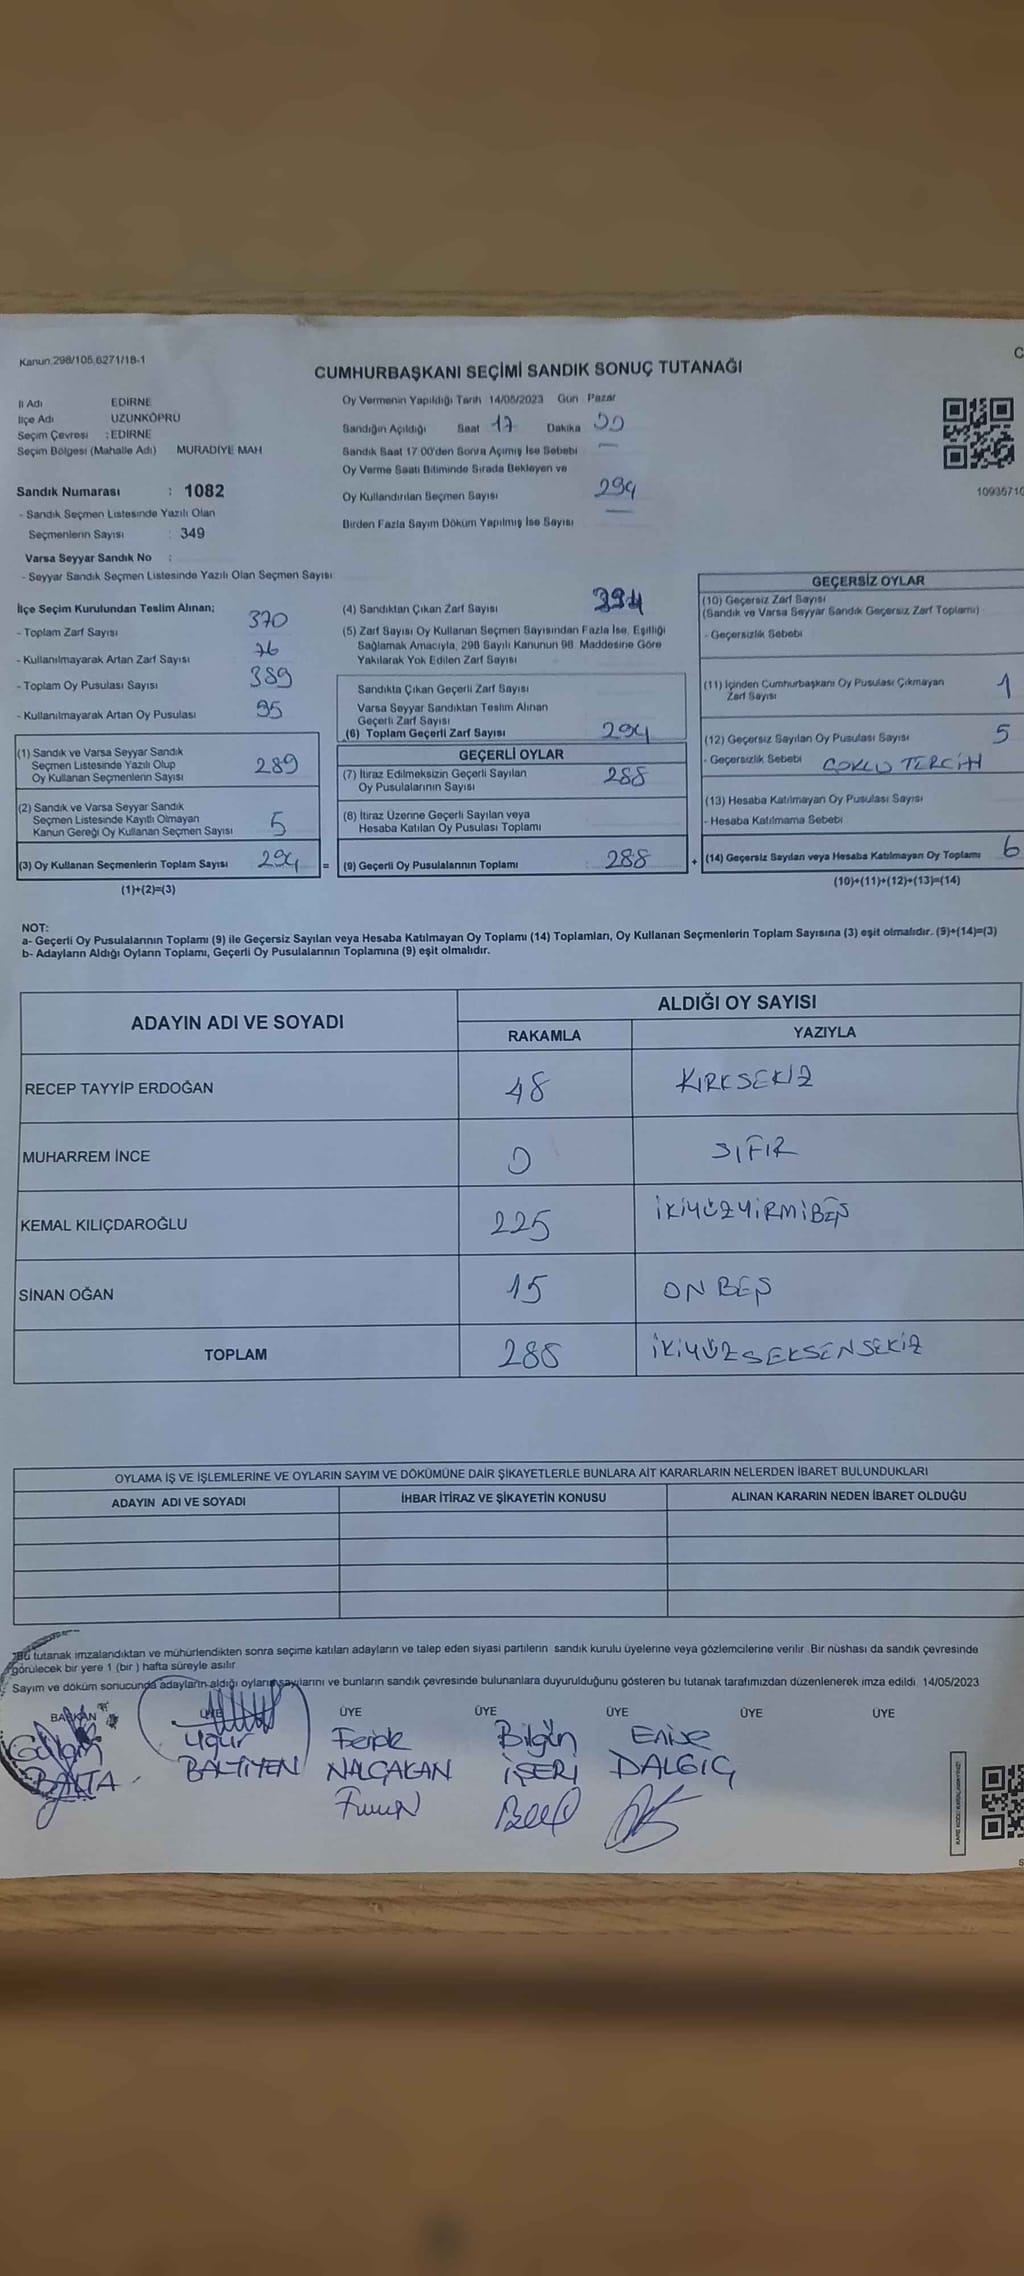 Kanun.298/105,6271/18-1
CUMHURBAŞKANI SEÇİMİ SANDIK SONUÇ TUTANAĞI
İl Adı EDİRNE
İlçe Adı UZUNKÖPRÜ
Seçim Çevresi : EDİRNE
Seçim Bölgesi (Mahalle Adı) MURADİYE MAH
Sandık Numarası : 1082
- Sandık Seçmen Listesinde Yazılı Olan
Seçmenlerin Sayısı : 349
Varsa Seyyar Sandık No :
- Seyyar Sandık Seçmen Listesinde Yazılı Olan Seçmen Sayısı
Oy Vermenin Yapıldığı Tarih 14/05/2023 Gün Pazar
Sandığın Açıldığı Saat 17 Dakika 00
Sandık Saat 17.00'den Sonra Açımış İse Sebebi —
Oy Verme Saati Bitiminde Sırada Bekleyen ve
Oy Kullandırılan Seçmen Sayısı 294
Birden Fazla Sayım Döküm Yapılmış İse Sayısı —
1093571
İlçe Seçim Kurulundan Teslim Alınan;
- Toplam Zarf Sayısı 370
- Kullanılmayarak Artan Zarf Sayısı 76
- Toplam Oy Pusulası Sayısı 389
- Kullanılmayarak Artan Oy Pusulası 95
(1) Sandık ve Varsa Seyyar Sandık
Seçmen Listesinde Yazılı Olup
Oy Kullanan Seçmenlerin Sayısı 289
(2) Sandık ve Varsa Seyyar Sandık
Seçmen Listesinde Kayıtlı Olmayan
Kanun Gereği Oy Kullanan Seçmen Sayısı 5
(3) Oy Kullanan Seçmenlerin Toplam Sayısı 294 =
(1)+(2)=(3)
(4) Sandıktan Çıkan Zarf Sayısı 294
(5) Zarf Sayısı Oy Kullanan Seçmen Sayısından Fazla İse, Eşitliği
Sağlamak Amacıyla, 298 Sayılı Kanunun 98. Maddesine Göre
Yakılarak Yok Edilen Zarf Sayısı
Sandıkta Çıkan Geçerli Zarf Sayısı
Varsa Seyyar Sandıktan Teslim Alınan
Geçerli Zarf Sayısı
(6) Toplam Geçerli Zarf Sayısı 294
GEÇERLİ OYLAR
(7) İtiraz Edilmeksizin Geçerli Sayılan
Oy Pusulalarının Sayısı 288
(8) İtiraz Üzerine Geçerli Sayılan veya
Hesaba Katılan Oy Pusulası Toplamı
(9) Geçerli Oy Pusulalarının Toplamı 288 +
GEÇERSİZ OYLAR
(10) Geçersiz Zarf Sayısı
(Sandık ve Varsa Seyyar Sandık Geçersiz Zarf Toplamı)
- Geçersizlik Sebebi
(11) İçinden Cumhurbaşkanı Oy Pusulası Çıkmayan
Zarf Sayısı 1
(12) Geçersiz Sayılan Oy Pusulası Sayısı 5
- Geçersizlik Sebebi ÇOKLU TERCİH
(13) Hesaba Katılmayan Oy Pusulası Sayısı
- Hesaba Katılmama Sebebi
(14) Geçersiz Sayılan veya Hesaba Katılmayan Oy Toplamı 6
(10)+(11)+(12)+(13)=(14)
NOT:
a- Geçerli Oy Pusulalarının Toplamı (9) ile Geçersiz Sayılan veya Hesaba Katılmayan Oy Toplamı (14) Toplamları, Oy Kullanan Seçmenlerin Toplam Sayısına (3) eşit olmalıdır. (9)+(14)=(3)
b- Adayların Aldığı Oyların Toplamı, Geçerli Oy Pusulalarının Toplamına (9) eşit olmalıdır.
ADAYIN ADI VE SOYADI
ALDIĞI OY SAYISI
RAKAMLA YAZIYLA
RECEP TAYYİP ERDOĞAN 48 KIRKSEKİZ
MUHARREM İNCE 0 SIFIR
KEMAL KILIÇDAROĞLU 225 İKİYÜZYİRMİBEŞ
SİNAN OĞAN 15 ON BEŞ
TOPLAM 288 İKİYÜZSEKSENSEKİZ
OYLAMA İŞ VE İŞLEMLERİNE VE OYLARIN SAYIM VE DÖKÜMÜNE DAİR ŞİKAYETLERLE BUNLARA AİT KARARLARIN NELERDEN İBARET BULUNDUKLARI
ADAYIN ADI VE SOYADI İHBAR İTİRAZ VE ŞİKAYETİN KONUSU ALINAN KARARIN NEDEN İBARET OLDUĞU
Bu tutanak imzalandıktan ve mühürlendikten sonra seçime katılan adayların ve talep eden siyasi partilerin sandık kurulu üyelerine veya gözlemcilerine verilir. Bir nüshası da sandık çevresinde
görülecek bir yere 1 (bir) hafta süreyle asılır.
Sayım ve döküm sonucunda adayların aldığı oyların sayılarını ve bunların sandık çevresinde bulunanlara duyurulduğunu gösteren bu tutanak tarafımızdan düzenlenerek imza edildi. 14/05/2023
BAŞKAN ÜYE ÜYE ÜYE ÜYE ÜYE ÜYE
Uğur Feride Bilgün Enise
BALTA BALTİYEN NALÇAKAN İŞERİ DALGIÇ